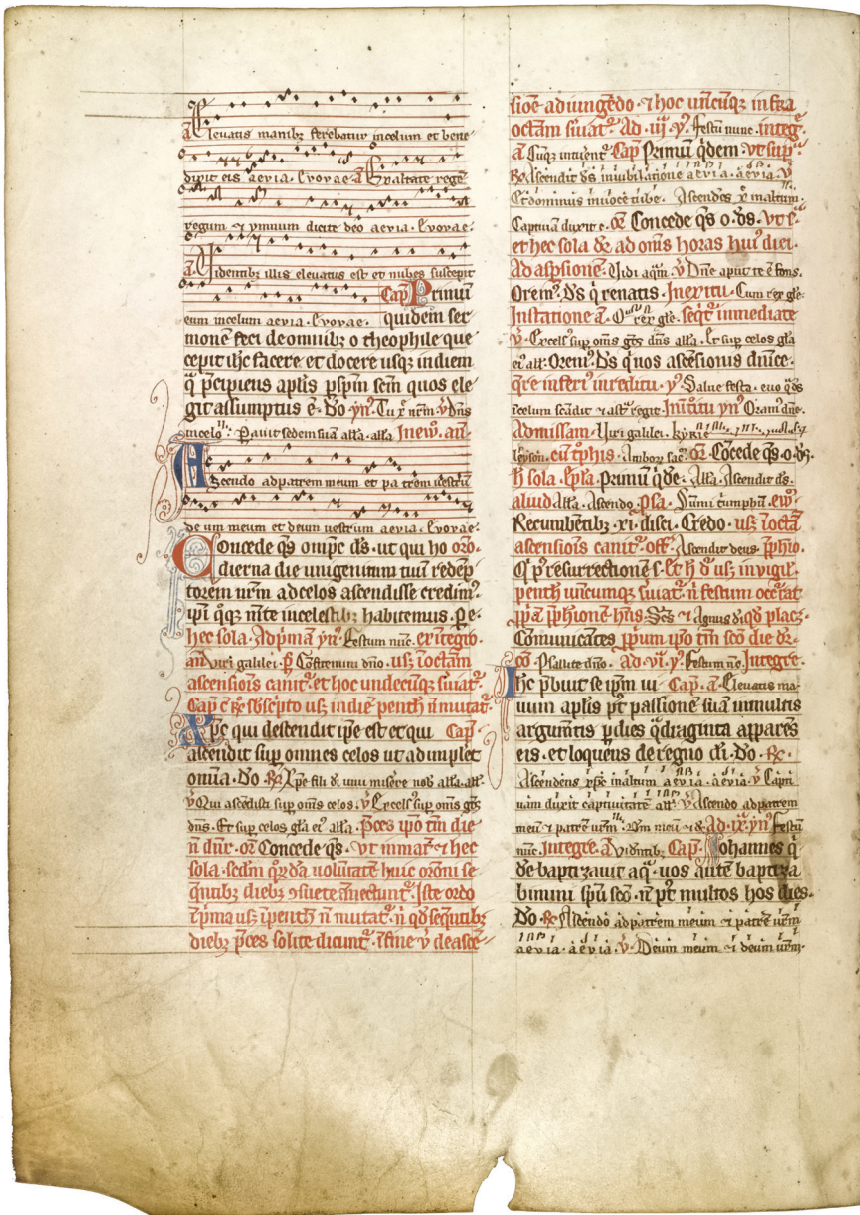 a Eleuatis manibꝫ ferebatur incelum et bene-
dixit eis aevia. Evovae. a Exaltate regē
regum ⁊ ymnum dicite deo aevia. Evovae.
a Uidentibꝫ illis eleuatus est et nubes suscepit
Cap̄ Primū
eum incelum aevia. Evovae. quidem ser
monē feci de omnibꝫ o theophile que
cepit ih̄c facere et docere usqꝫ in diem
q̄ p̄cipiens aplīs p̄ sp̄m sc̄m quos ele
git assumptus ē. Do yn̄. Tu x̄ nr̄m. v̄ Dn̄s
incelo. Parauit sedem suā all̓a. all̓a In ew̄. an̄
Ascendo ad patrem meum et pa trem uestrū
de um meum et deum uestrum aevia. Evovae.
Concede qs̄ omīpc̄ ds̄. ut qui ho oro.
dierna die unigenitum tuū redēp
torem nr̄m ad celos ascendisse credim᷒.
ip̄i qꝫ mīte in celestibꝫ habitemus. Pe.
hec sola. Ad p̄mā yn̄. Festum nūc. ex ītegro.
an̄ Viri galilei. p̄ Cōfitemini dn̄o. usꝫ ī octam̄
ascensiōis canit᷒. et hoc undecūqꝫ fuiat᷒.
Cap̄ c̄ R̄ sbscp̄to usꝫ in diē penth̄ n̄ mutat᷒.
Xp̄c qui descendit ip̄e est et qui Cap̄.
ascendit sup̄ omnes celos ut adimplet
omīa. Do R̄ Xp̄e fili d̄i uiui misere nob̄ all̓a. all̓.
v̄ Qui ascēdisti sup̄ om̄s celos. v̄ Excels᷒ sup̄ om̄s gēs
dn̄s. Et sup̄ celos gl̄a ei᷒ all̓a. Pc̄es ip̄o tm̄ die
n̄ dn̄r. or̄ Concede qs̄. vt in mat᷒ ⁊ hec
sola. sedm̄ qr̄dā volūtatē huic orōni se
q̄ntibꝫ diebꝫ ꝯsuete ānectunt᷒. Iste ordo
ī p̄ma usꝫ ī penth̄ n̄ mutat᷒. n̄ qd̄ seq̄ntibꝫ
diebꝫ p̄ces solite dicunt᷒. ī fine v̄ de ascē-
siōe adiungēdo. ⁊ hoc uncūqꝫ infra
octam̄ fuiat᷒. Ad .iij. y᷒. Festū nunc. integ᷒.
a Cūqꝫ intuent᷒ Cap̄ Primū q̄dem. vt sup᷒
R̄ Ascendit ds̄ in iubilatione aevia. aevia. v̄
Et dominus in uoce tube. Ascendēs x̄ in altum.
Captiuā duxit c. or̄ Concede qs̄ o. ds̄. vt s᷒.
et hec sola d̄r ad om̄s horas hui᷒ diei.
Ad asp̄sionē. Uidi aqm̄. v̄ Dn̄e aput te ē fons.
Orem᷒. Ds̄ q̄ renatis. In exitu. Cum rex gl̄e.
In statione a. O rex gl̄e. seqt᷒ inmediate
v̄. Excels᷒ sup̄ om̄s gēs dn̄s all̓a. Et sup̄ celos gl̄a
ei᷒ all̓. Orem᷒. Ds̄ q̄ nos ascēsionis dn̄ice.
qr̄e inferi᷒ in reditu. y᷒. Salue festa. euo qds̄
celum scādit ⁊ ast̄ᵃ tegit In ītitu yn̄. Oram᷒ dn̄e.
Ad missam. Viri galilei. kyrie
leyson. cū tp̄his. Ambor sac᷒. or̄. Cōcede qs̄ o. ds̄.
h̄ sola. Epl̄a. Primū q̄de. All̓a. Ascendit ds̄.
aliud All̓a. Ascendo. Psa. Sūmi tiumphū. ew̄.
Recumbētibꝫ .xi. disci. Credo. usꝫ ī octā
ascensiōis canit᷒. off̄. Ascendit deus. P̄phīo.
Q p᷒ resurrectionē s. Et h̄ d᷒ usꝫ in vigil᷒.
penth̄ uncumqꝫ fuiat᷒. n̄ festum occ᷒rat
pp̄ā p̄phionē hn̄s. Sc̄s ⁊ Agnus d̄i. qd̄ placꝫ.
Comunicātes pp̄um ip̄o tm̄ sc̄o die d̄r.
cō Psallite dn̄o. Ad .vi. y᷒. Festum n̄c. Integre.
Ihc p̄buit se ip̄m ui Cap̄. a. Eleuatis ma.
uum aplis pt̄ passionē suā in multis
argum̄tis p̄ dies q̄draginta apparēs
eis. et loquens de regno d̄i. Do. R̄.
Ascendens xp̄c in altum aevia. aevia. v̄ Capti
uam duxit captiuitatē all̓. v̄ Ascendo ad patrem
meū ⁊ patrē ur̄m. Dm̄ meū ⁊ d̄. Ad .ix. yn̄ Festū
nūc. Integre. a Videntibꝫ Cap̄. Iohannes q̄
dē baptizauit aq᷒. uos autē baptiza
bimini sp̄u sc̄o. n̄ pt̄ multos hos dies.
Do R̄ Ascendo ad patrem meum ⁊ patrē ur̄m
aevia. aevia. v̄. Deum meum ⁊ deum ur̄m.